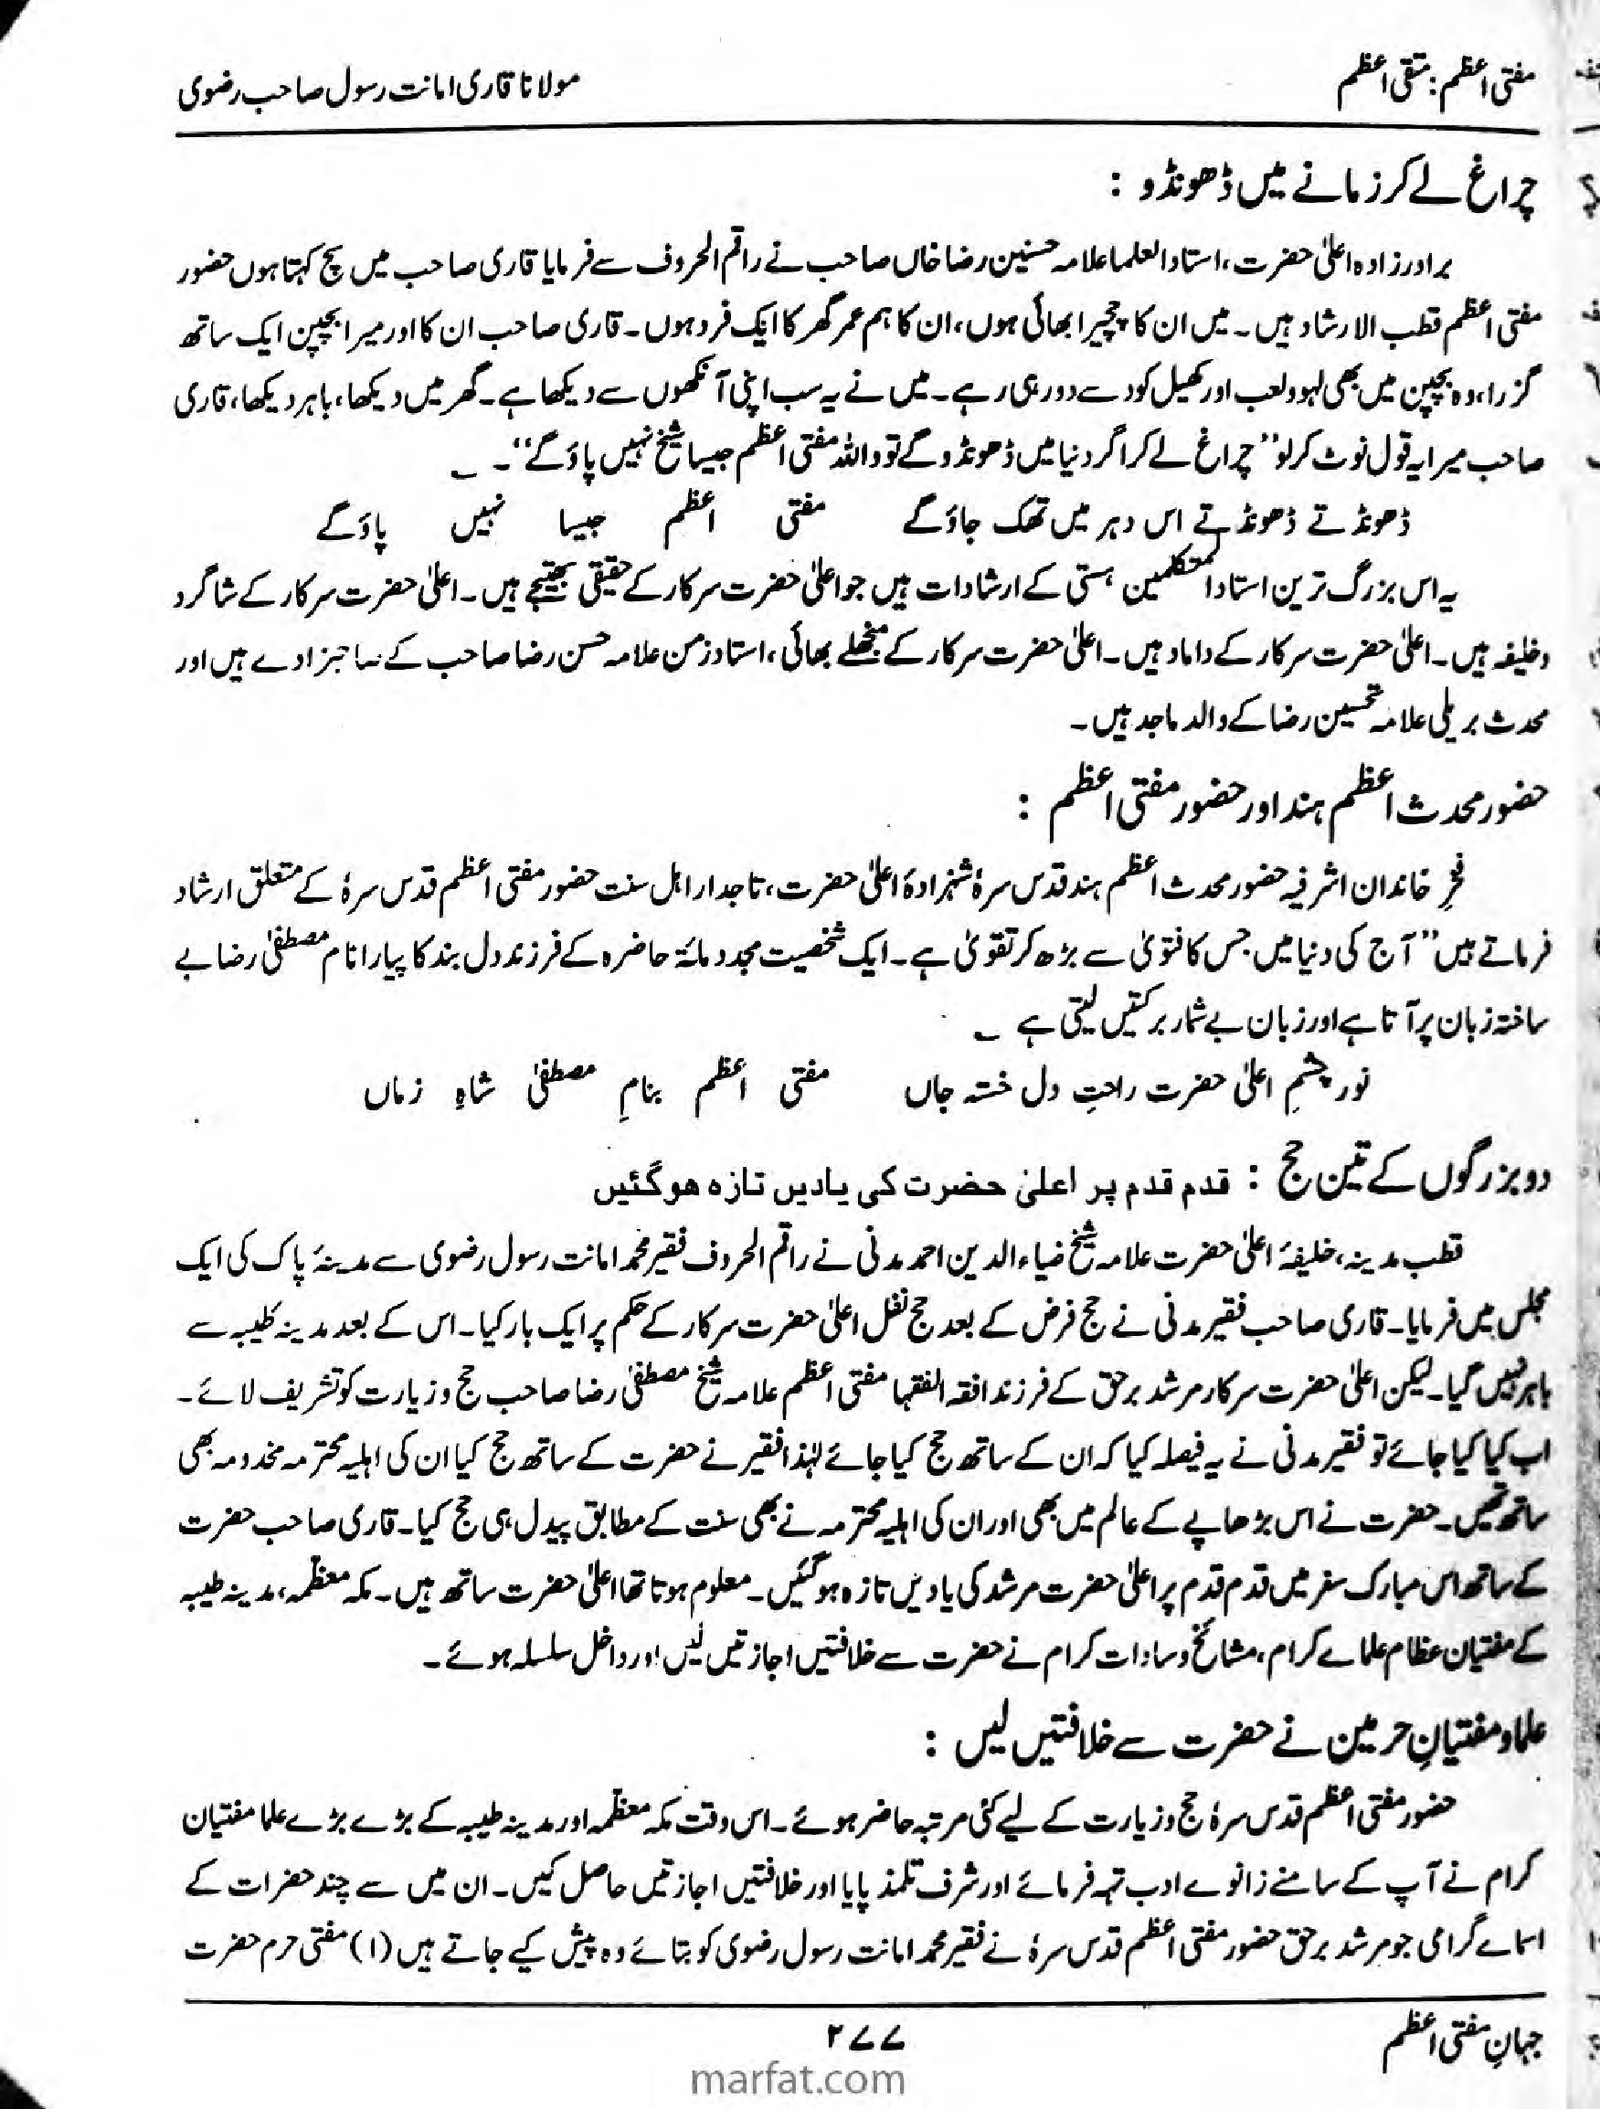 مفتی اعظم: متقی اعظم
مولانا قاری امانت رسول صاحب رضوی
چراغ لے کر زمانے میں ڈھونڈو :
برادر زادہ اعلیٰ حضرت، استاد العلما علامہ حسنین رضا خاں صاحب نے راقم الحروف سے فرمایا قاری صاحب میں سچ کہتا ہوں حضور
مفتی اعظم قطب الارشاد ہیں۔ میں ان کا چچیرا بھائی ہوں، ان کا ہم عمر گھر کا ایک فرد ہوں۔ قاری صاحب ان کا اور میرا بچپن ایک ساتھ
گزرا، وہ بچپن میں بھی لہو ولعب اور کھیل کود سے دور ہی رہے۔ میں نے یہ سب اپنی آنکھوں سے دیکھا ہے۔ گھر میں دیکھا، باہر دیکھا، قاری
صاحب میرا یہ قول نوٹ کر لو ”چراغ لے کر اگر دنیا میں ڈھونڈو گے تو واللہ مفتی اعظم جیسا شیخ نہیں پاؤ گے“۔ ؎
ڈھونڈتے ڈھونڈتے اس دہر میں تھک جاؤ گے مفتی اعظم جیسا نہیں پاؤ گے
یہ اس بزرگ ترین استاد المتکلمین ہستی کے ارشادات ہیں جو اعلیٰ حضرت سرکار کے حقیقی بھتیجے ہیں۔ اعلیٰ حضرت سرکار کے شاگرد
و خلیفہ ہیں۔ اعلیٰ حضرت سرکار کے داماد ہیں۔ اعلیٰ حضرت سرکار کے منجھلے بھائی، استاد زمن علامہ حسن رضا صاحب کے صاحبزادے ہیں اور
محدث بریلی علامہ تحسین رضا کے والد ماجد ہیں۔
حضور محدث اعظم ہند اور حضور مفتی اعظم :
فخرِ خاندان اشرفیہ حضور محدث اعظم ہند قدس سرہٗ شہزادۂ اعلیٰ حضرت، تاجدار اہل سنت حضور مفتی اعظم قدس سرہٗ کے متعلق ارشاد
فرماتے ہیں ”آج کی دنیا میں جس کا فتویٰ سے بڑھ کر تقویٰ ہے۔ ایک شخصیت مجدد مائۃ حاضرہ کے فرزند دل بند کا پیارا نام مصطفیٰ رضا بے
ساختہ زبان پر آتا ہے اور زبان بے شمار برکتیں لیتی ہے ؎
نور چشمِ اعلیٰ حضرت راحتِ دل خستہ جاں مفتی اعظم بنامِ مصطفیٰ شاہِ زماں
دو بزرگوں کے تین حج : قدم قدم پر اعلیٰ حضرت کی یادیں تازہ ہوگئیں
قطب مدینہ، خلیفۂ اعلیٰ حضرت علامہ شیخ ضیاء الدین احمد مدنی نے راقم الحروف فقیر محمد امانت رسول رضوی سے مدینۂ پاک کی ایک
مجلس میں فرمایا۔ قاری صاحب فقیر مدنی نے حج فرض کے بعد حج نفل اعلیٰ حضرت سرکار کے حکم پر ایک بار کیا۔ اس کے بعد مدینہ طیبہ سے
باہر نہیں گیا۔ لیکن اعلیٰ حضرت سرکار مرشد برحق کے فرزند افقہ الفقہا مفتی اعظم علامہ شیخ مصطفیٰ رضا صاحب حج و زیارت کو تشریف لائے۔
اب کیا کیا جائے تو فقیر مدنی نے یہ فیصلہ کیا کہ ان کے ساتھ حج کیا جائے لہٰذا فقیر نے حضرت کے ساتھ حج کیا ان کی اہلیہ محترمہ مخدومہ بھی
ساتھ تھیں۔ حضرت نے اس بڑھاپے کے عالم میں بھی اور ان کی اہلیہ محترمہ نے بھی سنت کے مطابق پیدل ہی حج کیا۔ قاری صاحب حضرت
کے ساتھ اس مبارک سفر میں قدم قدم پر اعلیٰ حضرت مرشد کی یادیں تازہ ہوگئیں۔ معلوم ہوتا تھا اعلیٰ حضرت ساتھ ہیں۔ مکہ معظمہ، مدینہ طیبہ
کے مفتیان عظام علماے کرام، مشائخ و سادات کرام نے حضرت سے خلافتیں اجازتیں لیں اور داخل سلسلہ ہوئے۔
علما و مفتیانِ حرمین نے حضرت سے خلافتیں لیں :
حضور مفتی اعظم قدس سرہٗ حج و زیارت کے لیے کئی مرتبہ حاضر ہوئے۔ اس وقت مکہ معظمہ اور مدینہ طیبہ کے بڑے بڑے علما مفتیان
کرام نے آپ کے سامنے زانوے ادب تہہ فرمائے اور شرف تلمذ پایا اور خلافتیں اجازتیں حاصل کیں۔ ان میں سے چند حضرات کے
اسماے گرامی جو مرشد برحق حضور مفتی اعظم قدس سرہٗ نے فقیر محمد امانت رسول رضوی کو بتائے وہ پیش کیے جاتے ہیں (۱) مفتی حرم حضرت
جہانِ مفتی اعظم
۲۷۷
marfat.com